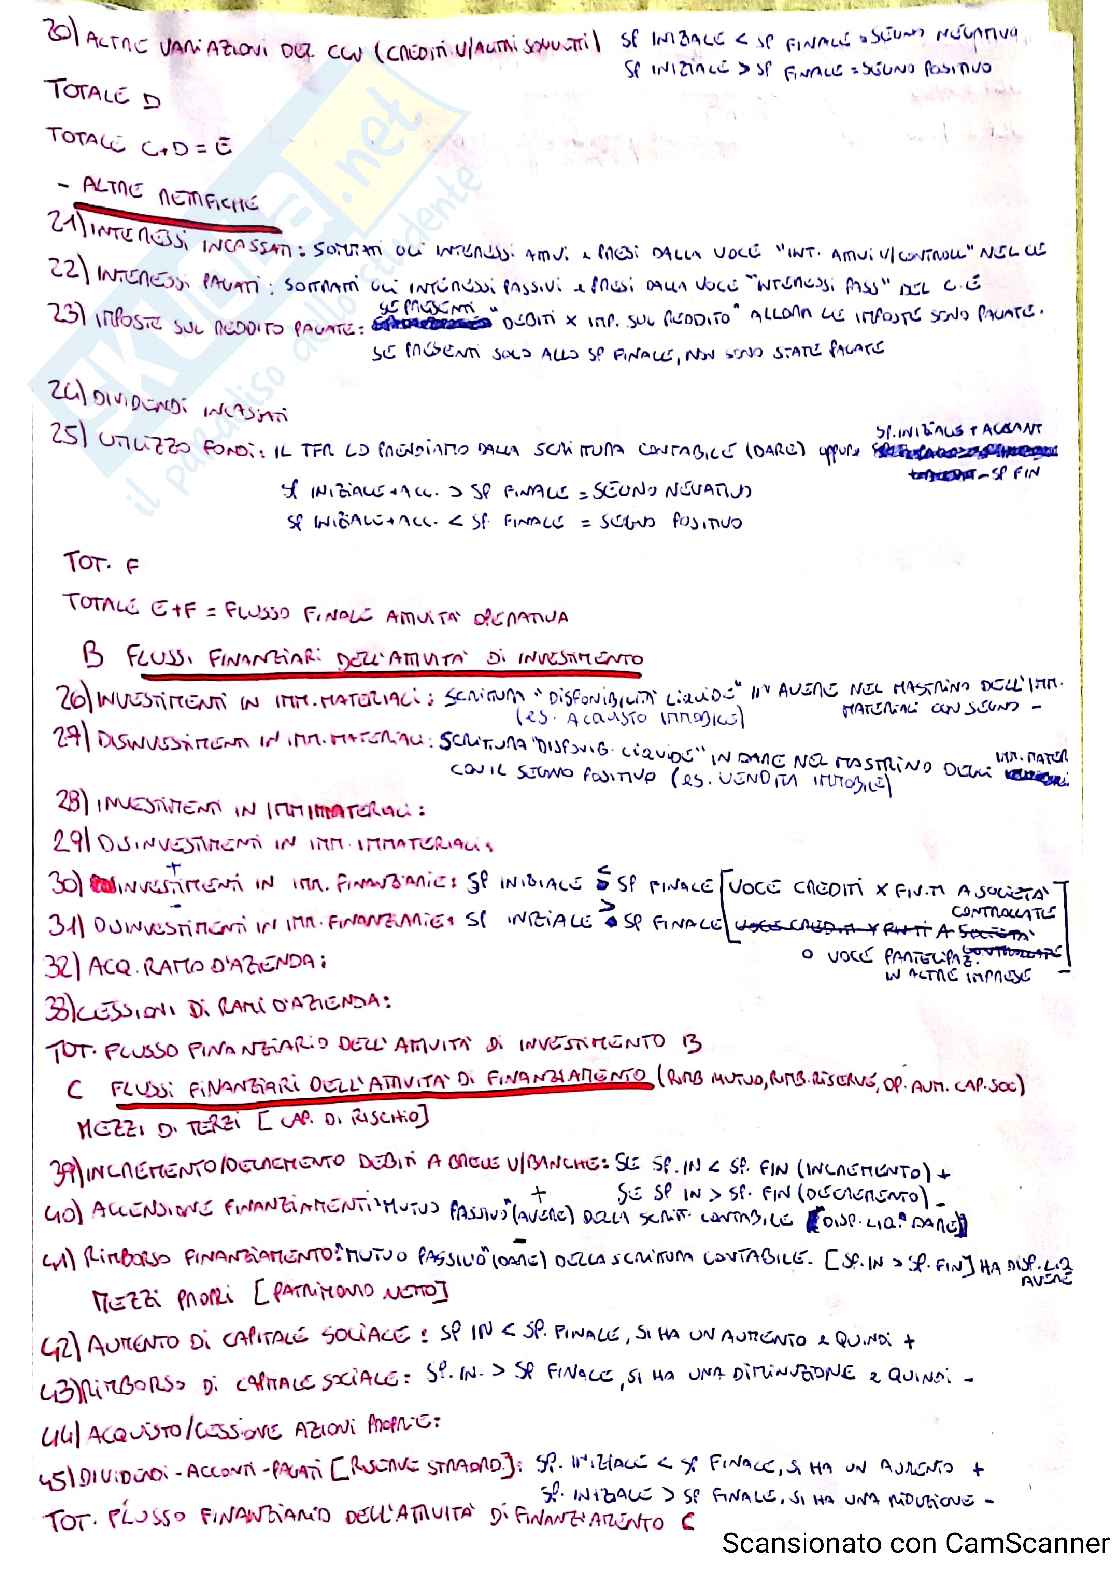 20) ALTRE VARIAZIONI DEL CCN (CREDITI V/ALTRI SOGGETTI) SP INIZIALE < SP FINALE = SEGNO NEGATIVO
SP INIZIALE > SP FINALE = SEGNO POSITIVO
TOTALE D
TOTALE C+D = E
- ALTRE RETTIFICHE
21) INTERESSI INCASSATI: SOMMATI GLI INTERESSI ATTIVI e PRESI DALLA VOCE "INT. ATTIVI V/CONTROLL" NEL CE
22) INTERESSI PAGATI: SOTTRATTI GLI INTERESSI PASSIVI e PRESI DALLA VOCE "INTERESSI PASS" DEL C.E
23) IMPOSTE SUL REDDITO PAGATE: SE PRESENTI "DEBITI X IMP. SUL REDDITO" ALLORA LE IMPOSTE SONO PAGATE.
SE PRESENTI SOLO ALLO SP FINALE, NON SONO STATE PAGATE
24) DIVIDENDI INCASSATI
25) UTILIZZO FONDI: IL TFR LO PRENDIAMO DALLA SCRITTURA CONTABILE (DARE) oppure SP. INIZIALE + ACCANT
- SP FIN
SP INIZIALE + ACC. > SP FINALE = SEGNO NEGATIVO
SP INIZIALE + ACC. < SP. FINALE = SEGNO POSITIVO
TOT. F
TOTALE E+F = FLUSSO FINALE ATTIVITÀ OPERATIVA
B FLUSSI FINANZIARI DELL'ATTIVITÀ DI INVESTIMENTO
26) INVESTIMENTI IN IMM. MATERIALI: SCRITTURA "DISPONIBILITÀ LIQUIDE" IN AVERE NEL MASTRINO DELL'IMM.
(es. ACQUISTO IMMOBILE) MATERIALI CON SEGNO -
27) DISINVESTIMENTI IN IMM. MATERIALI: SCRITTURA "DISPONIB. LIQUIDE" IN DARE NEL MASTRINO DEGLI IMM. MATER
CON IL SEGNO POSITIVO (es. VENDITA IMMOBILE)
28) INVESTIMENTI IN IMM IMMATERIALI:
29) DISINVESTIMENTI IN IMM. IMMATERIALI:
30) INVESTIMENTI IN IMM. FINANZIARIE: SP INIZIALE < SP FINALE [VOCE CREDITI X FIN.TI A SOCIETÀ
CONTROLLATE
31) DISINVESTIMENTI IN IMM. FINANZIARIE: SP INIZIALE > SP FINALE [VOCE CREDITI X FIN.TI A SOCIETÀ CONTROLLATE
O VOCE PARTECIPAZ.
IN ALTRE IMPRESE]
32) ACQ. RAMO D'AZIENDA:
33) CESSIONI DI RAMI D'AZIENDA:
TOT. FLUSSO FINANZIARIO DELL'ATTIVITÀ DI INVESTIMENTO B
C FLUSSI FINANZIARI DELL'ATTIVITÀ DI FINANZIAMENTO (RIMB MUTUO, RIMB. RISERVE, OP. AUM. CAP. SOC)
MEZZI DI TERZI [CAP. DI RISCHIO]
39) INCREMENTO/DECREMENTO DEBITI A BREVE V/BANCHE: SE SP. IN < SP. FIN (INCREMENTO) +
SE SP IN > SP. FIN (DECREMENTO) -
40) ACCENSIONE FINANZIAMENTI "MUTUO PASSIVO" (AVERE) DELLA SCRITT. CONTABILE [DISP. LIQ. DARE]
41) RIMBORSO FINANZIAMENTO: "MUTUO PASSIVO" (DARE) DELLA SCRITTURA CONTABILE. [SP. IN > SP. FIN] HA DISP. LIQ
AVERE
MEZZI PROPRI [PATRIMONIO NETTO]
42) AUMENTO DI CAPITALE SOCIALE: SP IN < SP. FINALE, SI HA UN AUMENTO e QUINDI +
43) RIMBORSO DI CAPITALE SOCIALE: SP. IN. > SP FINALE, SI HA UNA DIMINUZIONE e QUINDI -
44) ACQUISTO/CESSIONE AZIONI PROPRIE:
45) DIVIDENDI - ACCONTI - PAGATI [RISERVE STRAORD]: SP. INIZIALE < SP FINALE, SI HA UN AUMENTO +
SP. INIZIALE > SP FINALE, SI HA UNA RIDUZIONE -
TOT. FLUSSO FINANZIARIO DELL'ATTIVITÀ DI FINANZIAMENTO C
Scansionato con CamScanner
SKUOLA.net
il paradiso dello studente